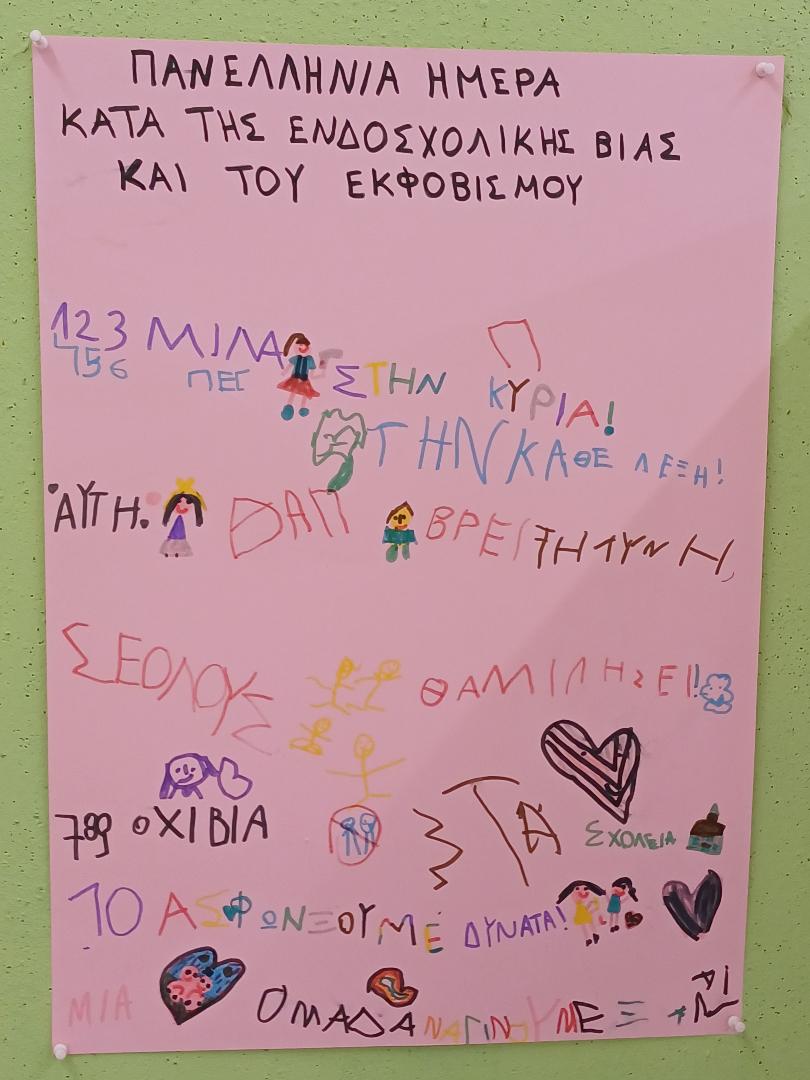 ΠΑΝΕΛΛΗΝΙΑ ΗΜΕΡΑ
ΚΑΤΑ ΤΗΣ ΕΝΔΟΣΧΟΛΙΚΗΣ ΒΙΑΣ
ΚΑΙ ΤΟΥ ΕΚΦΟΒΙΣΜΟΥ
123 ΜΙΛΑ
456 ΠΕΣ ΣΤΗΝ ΚΥΡΙΑ!
ΤΗΝ ΚΑΘΕ ΛΕΞΗ!
ΑΥΤΗ. ΘΑ ΒΡΕΙ ΤΗ ΛΥΣΗ,
ΣΕ ΟΛΟΥΣ ΘΑ ΜΙΛΗΣΕΙ!
789 ΟΧΙ ΒΙΑ ΣΤΑ ΣΧΟΛΕΙΑ
10 ΑΣ ΦΩΝΞΟΥΜΕ ΔΥΝΑΤΑ!
ΜΙΑ ΟΜΑΔΑ ΝΑ ΓΙΝΟΥΜΕ